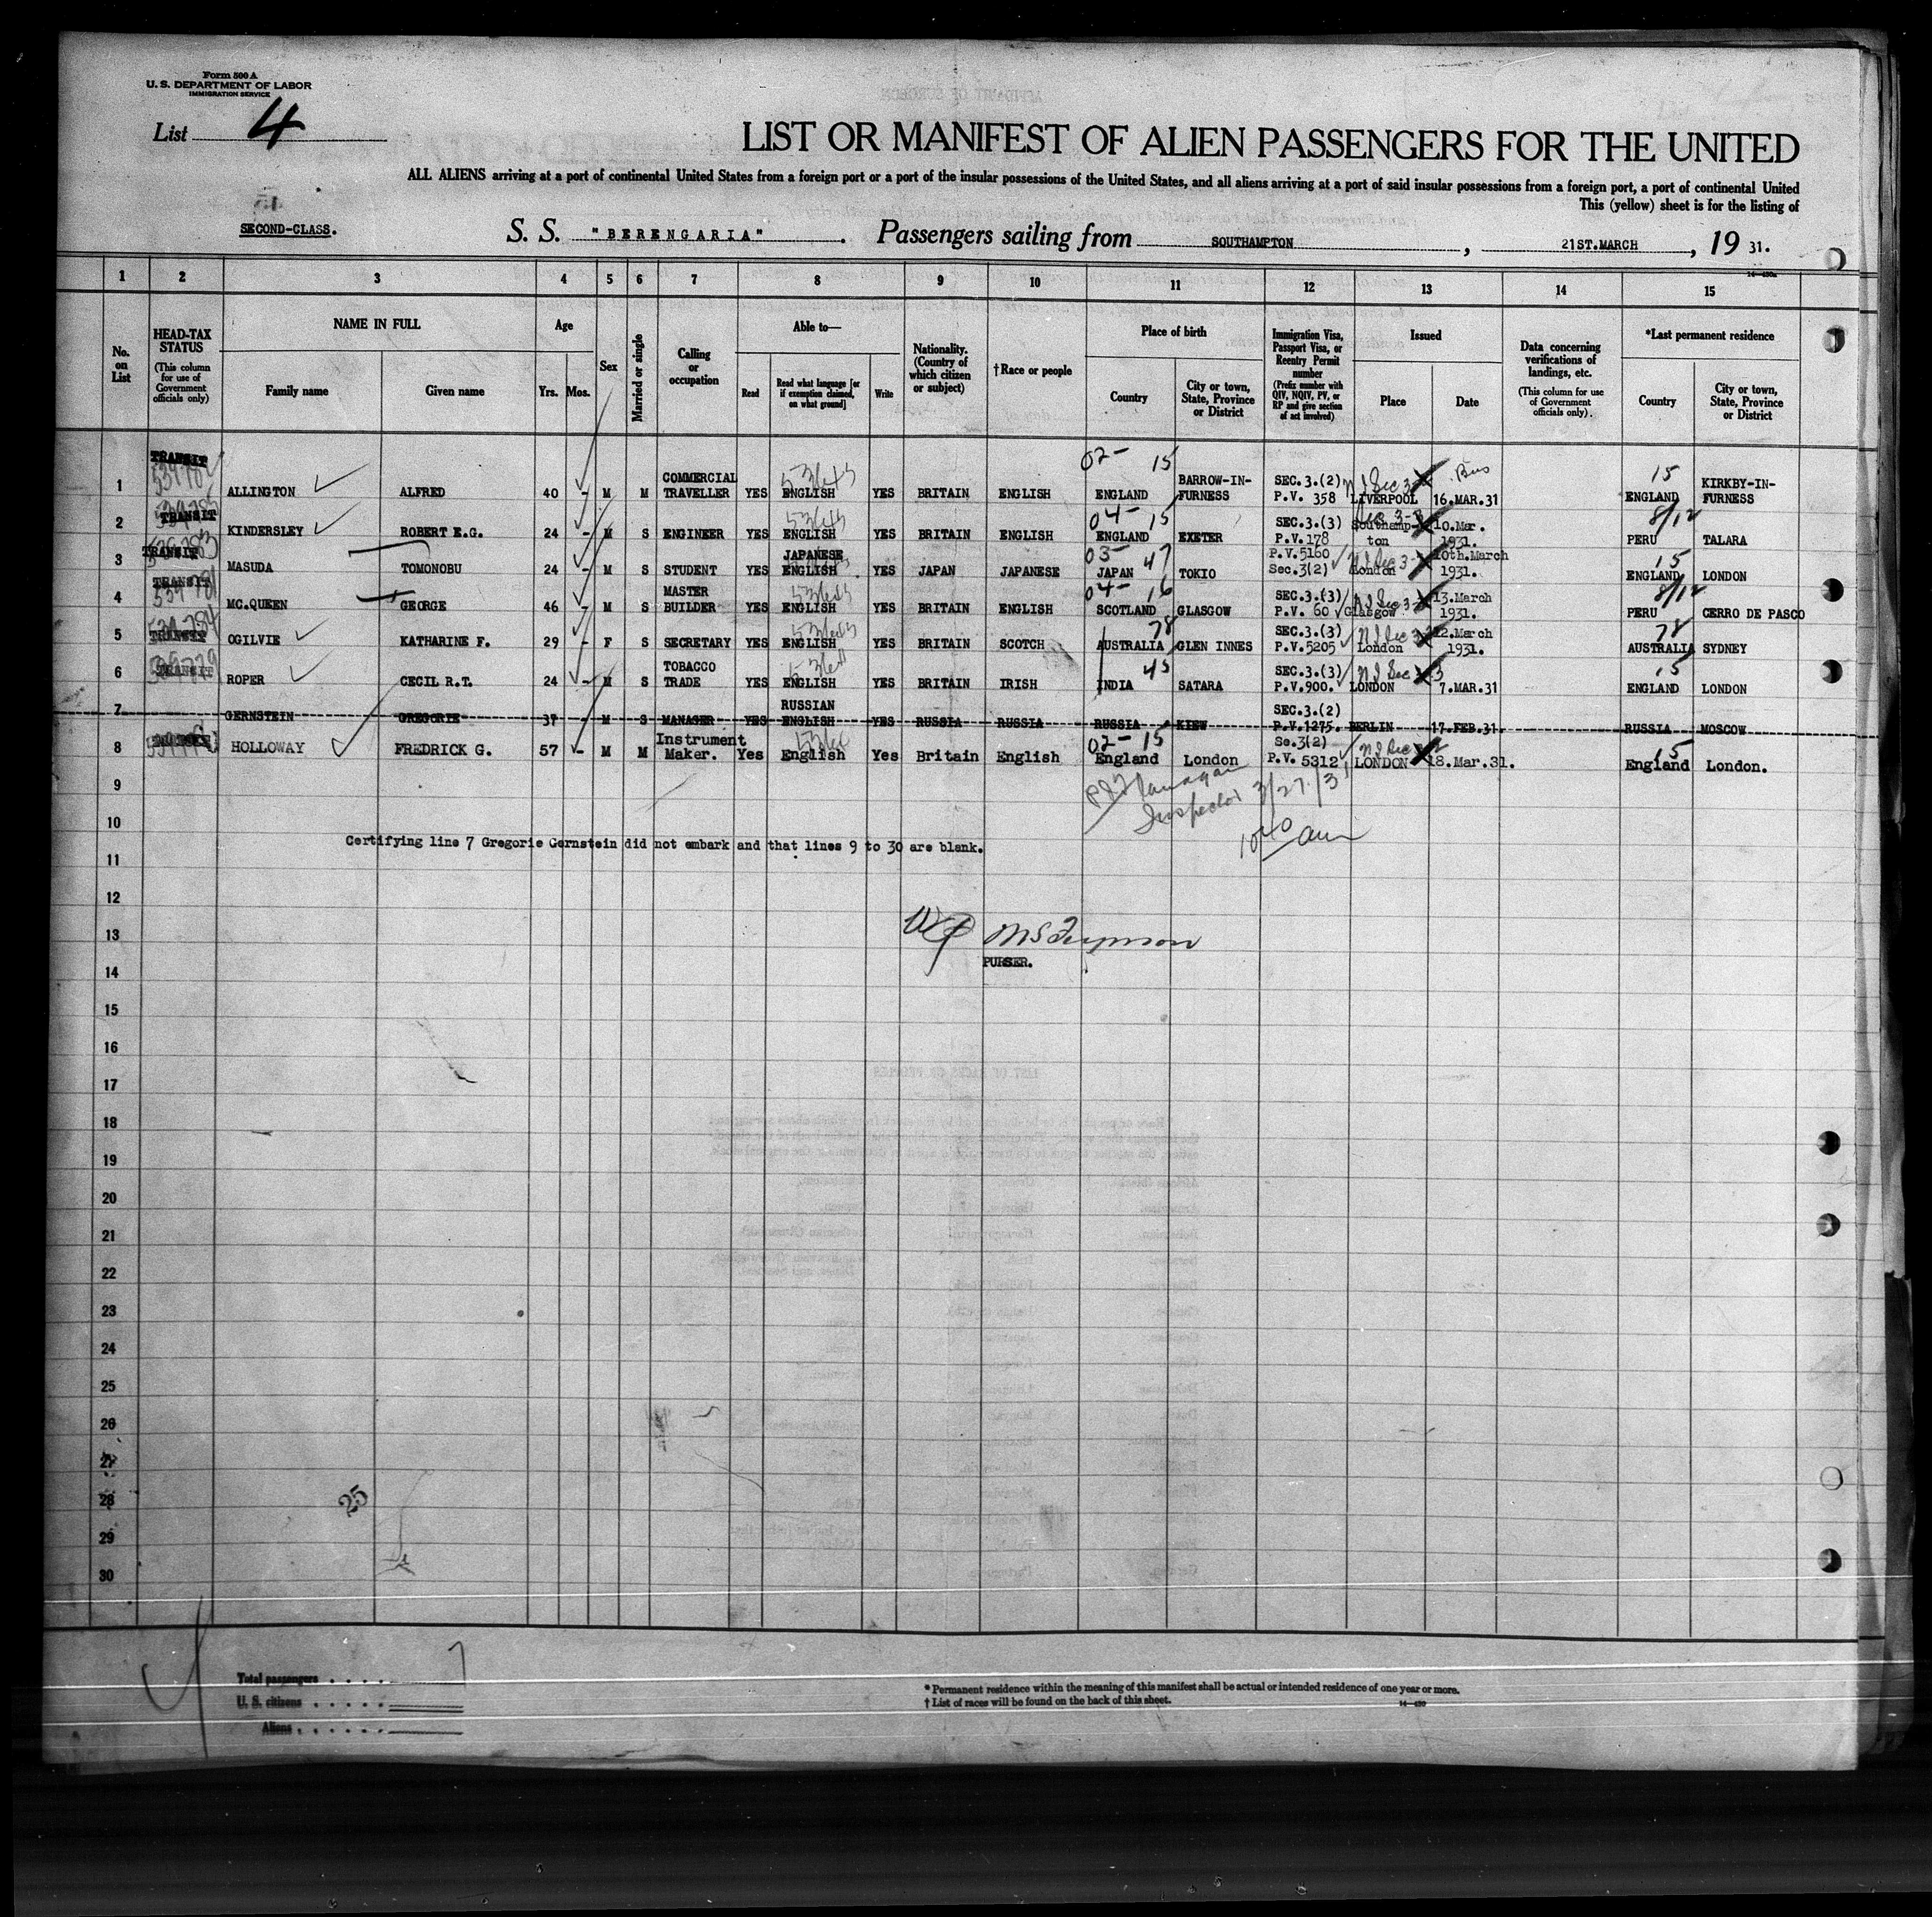 Form 500 A
U. S. DEPARTMENT OF LABOR
IMMIGRATION SERVICE
List 4
LIST OR MANIFEST OF ALIEN PASSENGERS FOR THE UNITED
ALL ALIENS arriving at a port of continental United States from a foreign port or a port of the insular possessions of the United States, and all aliens arriving at a port of said insular possessions from a foreign port, a port of continental United
This (yellow) sheet is for the listing of
SECOND-CLASS. S. S. "BERENGARIA". Passengers sailing from SOUTHAMPTON, 21ST.MARCH, 19 31.
1 2 3 4 5 6 7 8 9 10 11 12 13 14 15
No. on List
HEAD-TAX STATUS (This column for use of Government officials only)
NAME IN FULL
Family name Given name
Age
Yrs. Mos.
Sex
Married or single
Calling or occupation
Able to—
Read Read what language [or if exemption claimed, on what ground] Write
Nationality. (Country of which citizen or subject)
†Race or people
Place of birth
Country City or town, State, Province or District
Immigration Visa, Passport Visa, or Reentry Permit number (Prefix number with QIV, NQIV, PV, or RP and give section of act involved)
Issued
Place Date
Data concerning verifications of landings, etc. (This column for use of Government officials only).
*Last permanent residence
Country City or town, State, Province or District
1 TRANSIT ALLINGTON ALFRED 40 - M M COMMERCIAL TRAVELLER YES ENGLISH YES BRITAIN ENGLISH 02- 15 ENGLAND BARROW-IN-FURNESS SEC.3.(2) P.V. 358 LIVERPOOL 16.MAR.31 15 ENGLAND KIRKBY-IN-FURNESS
2 TRANSIT KINDERSLEY ROBERT E.G. 24 - M S ENGINEER YES ENGLISH YES BRITAIN ENGLISH 04- 15 ENGLAND EXETER SEC.3.(3) P.V.178 Southampton 10.Mar. 1931. 8/12 PERU TALARA
3 TRANSIT MASUDA TOMONOBU 24 - M S STUDENT YES JAPANESE ENGLISH YES JAPAN JAPANESE 03- 47 JAPAN TOKIO P.V.5160 Sec.3(2) London 10th.March 1931. 15 ENGLAND LONDON
4 TRANSIT MC.QUEEN GEORGE 46 - M S MASTER BUILDER YES ENGLISH YES BRITAIN ENGLISH 04- 16 SCOTLAND GLASGOW SEC.3.(3) P.V. 60 Glasgow 13.March 1931. 8/12 PERU CERRO DE PASCO
5 TRANSIT OGILVIE KATHARINE F. 29 - F S SECRETARY YES ENGLISH YES BRITAIN SCOTCH 78 AUSTRALIA GLEN INNES SEC.3.(3) P.V.5205 London 12.March 1931. 78 AUSTRALIA SYDNEY
6 TRANSIT ROPER CECIL R.T. 24 - M S TOBACCO TRADE YES ENGLISH YES BRITAIN IRISH 45 INDIA SATARA SEC.3.(3) P.V.900. LONDON 7.MAR.31 15 ENGLAND LONDON
7 GERNSTEIN GREGORIE 37 - M S MANAGER YES RUSSIAN ENGLISH YES RUSSIA RUSSIA RUSSIA KIEW SEC.3.(2) P.V.1275. BERLIN 17.FEB.31. RUSSIA MOSCOW
8 HOLLOWAY FREDRICK G. 57 - M M Instrument Maker. Yes English Yes Britain English 02- 15 England London Se.3(2) P.V. 5312 LONDON 18.Mar.31. 15 England London.
9
Inspector 3/27/31
10
1040 am
Certifying line 7 Gregorie Gernstein did not embark and that lines 9 to 30 are blank.
11
12
13
PURSER.
14
15
16
17
18
19
20
21
22
23
24
25
26
27
28
25
29
30
Total passengers . . . . 7
U. S. citizens . . . . .
Aliens . . . . . .
* Permanent residence within the meaning of this manifest shall be actual or intended residence of one year or more.
† List of races will be found on the back of this sheet.
14—430